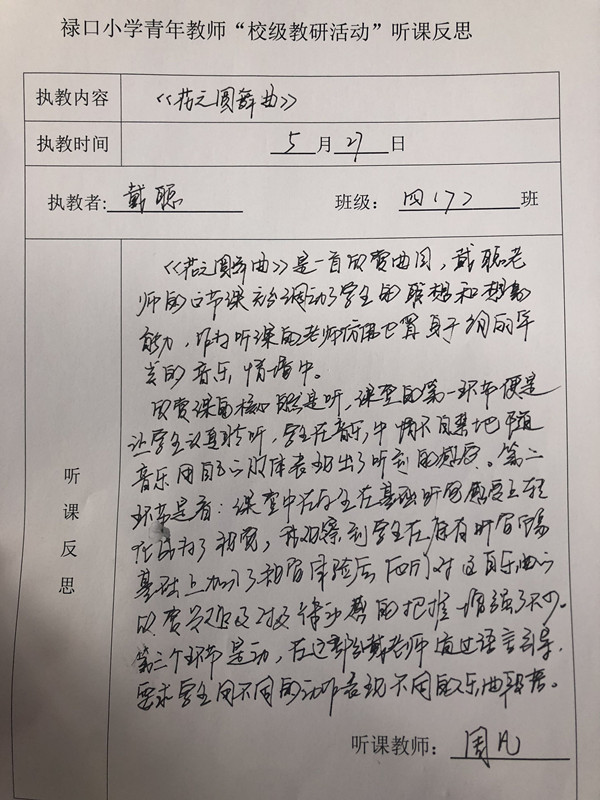 禄口小学青年教师“校级教研活动”听课反思
执教内容 《花之圆舞曲》
执教时间 5月27日
执教者: 戴聪 班级: 四(7)班
听课反思
《花之圆舞曲》是一首欣赏曲目，戴聪老
师的这节课充分调动了学生的联想和想象
能力，作为听课的老师仿佛已置身于绚丽华
美的音乐情境中。
欣赏课的核心既然是听，课堂的第一环节便是
让学生认真聆听，学生在音乐中情不自禁地随
音乐用自己的肢体表现出了听到的感受。第二
环节是看：课堂中在学生在基础听赏感受上
视赏，我观察到学生在原有听赏
基础上加入了视赏体验后，他们对这首乐曲的
欣赏兴趣及对旋律的把握增强了不少。
第三个环节是动，在这部分戴老师通过语言引导，
要求学生用不同的动作表现不同的乐曲段落。
听课教师: 周凡